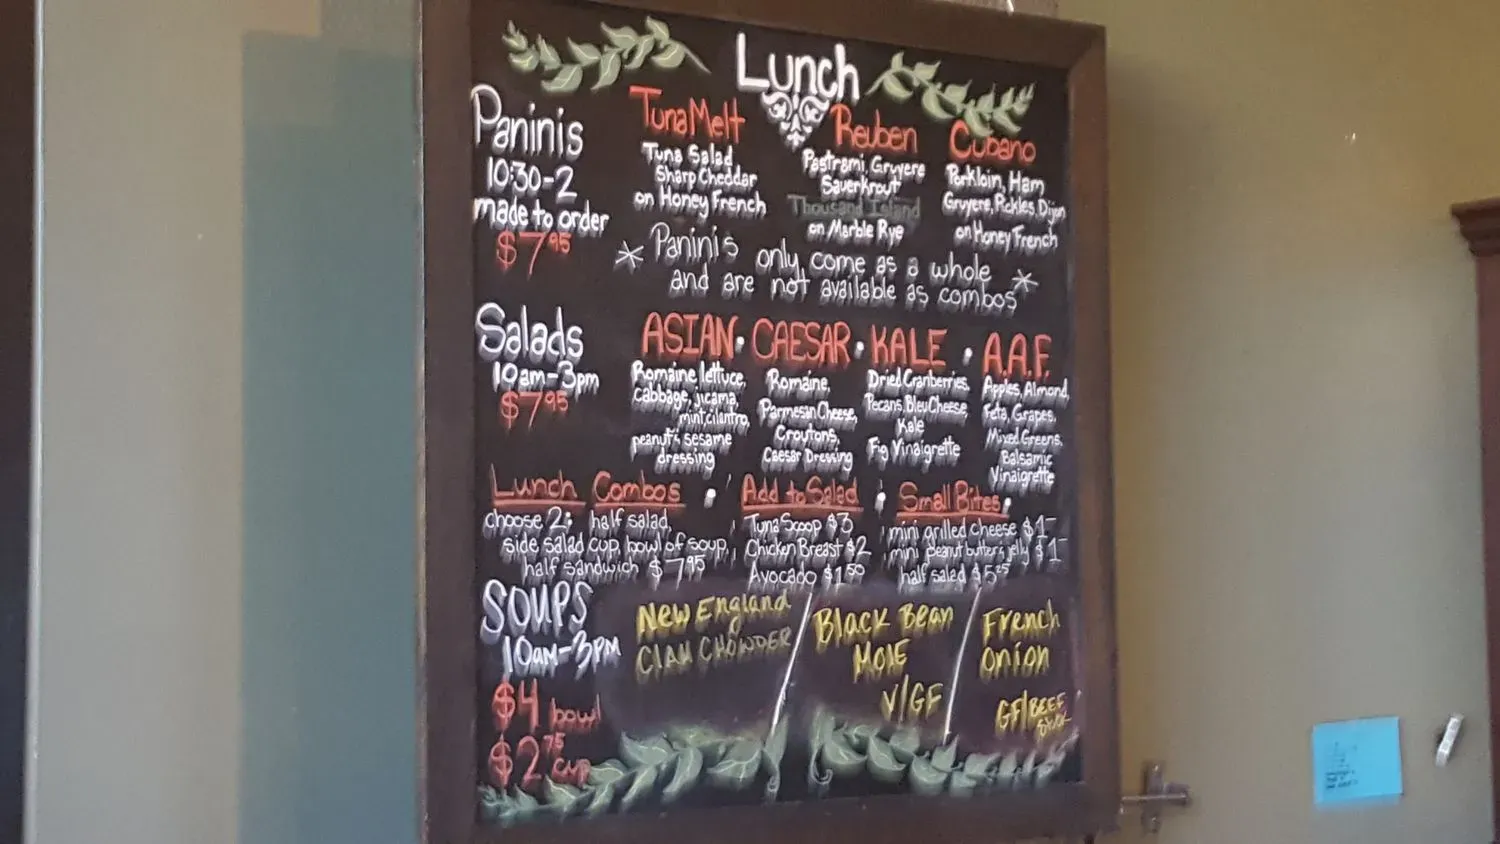 Lunch
Paninis
10:30-2
made to order
$7.95
Tuna Melt
Tuna Salad
Sharp Cheddar
on Honey French
Reuben
Pastrami, Gruyere
Saverkrout
Thousand Island
on Marble Rye
Cubano
Porkloin, Ham
Gruyere, Pickles, Dijon
on Honey French
* Paninis only come as a whole *
and are not available as combos
Salads
10am-3pm
$7.95
ASIAN • CAESAR • KALE • A.A.F.
Romaine lettuce,
Cabbage, jicama,
mint, cilantro,
peanuts, sesame
dressing
Romaine,
Parmesan Cheese,
Croutons,
Caesar Dressing
Dried Cranberries,
Pecans, Bleu Cheese,
Kale
Fig Vinaigrette
Apples, Almond,
Feta, Grapes,
Mixed Greens,
Balsamic
Vinaigrette
Lunch Combos
choose 2: half salad,
side salad cup, bowl of soup,
half sandwich $7.95
Add to Salad
Tuna Scoop $3
Chicken Breast $2
Avocado $1.50
Small Bites
mini grilled cheese $1-
mini peanut butter & jelly $1-
half salad $5.25
SOUPS
10am-3PM
$4 bowl
$2.75 cup
New England
Clam Chowder
Black Bean
Mole
V/GF
French
Onion
GF/BEEF